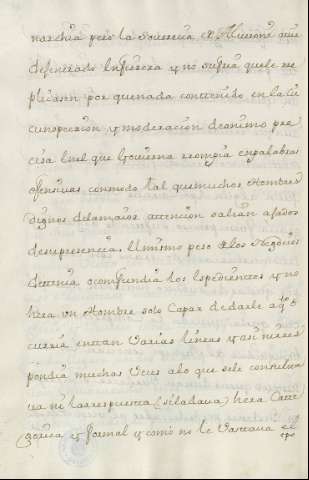 narchia pero la Sobervia de Alverone que
desenfrenado Infurera y no sufria quele re
plicasen por quenada contenido en la cir
cunspeccion y moderacion de animo pre
cisa en el que Govierna rrompia en palabras
ofensivas con modo tal que muchos Hombres
dignos dela maior attencion salian ajados
de su presencia. El mismo peso de los Negocios
detenia o confundia los Espedientes y no
hera un Hombre solo Capaz de darle a q.to o
curria en tan Varias lineas y asi ni res
pondia muchas Veces a lo que sele consulta
va ni la rrespuesta (si la dava) hera Cate
gorica y formal y como no le Vastava el
tpo